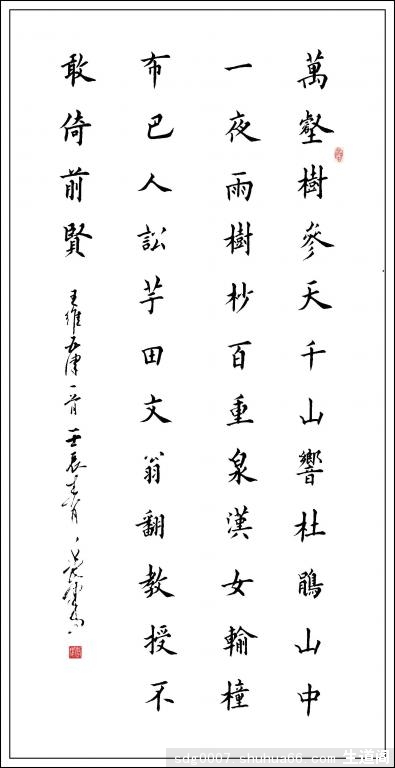 萬壑樹參天千山響杜鵑山中
一夜雨樹杪百重泉漢女輸橦
布巴人訟芋田文翁翻教授不
敢倚前賢
王維五律一首 壬辰
sdg0007 shuhua66.com 生道阁